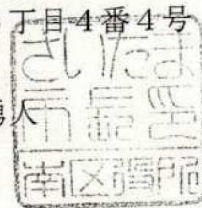 丁目4番4号
人
さいたま
市長印
南区役所